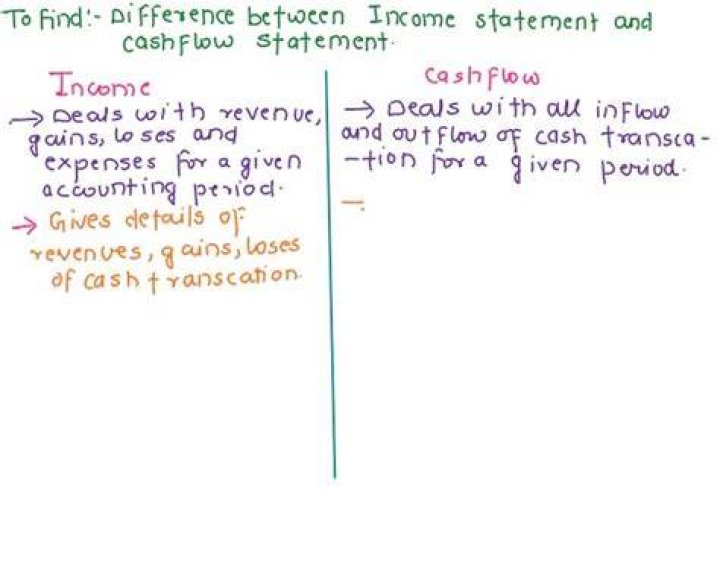 To Find:- Difference between Income statement and
cashflow statement.
Income
→ Deals with revenue,
gains, loses and
expenses for a given
accounting period.
→ Gives details of
revenues, gains, loses
of cash transcation.
Cashflow
→ Deals with all inflow
and outflow of cash transca-
-tion for a given period.